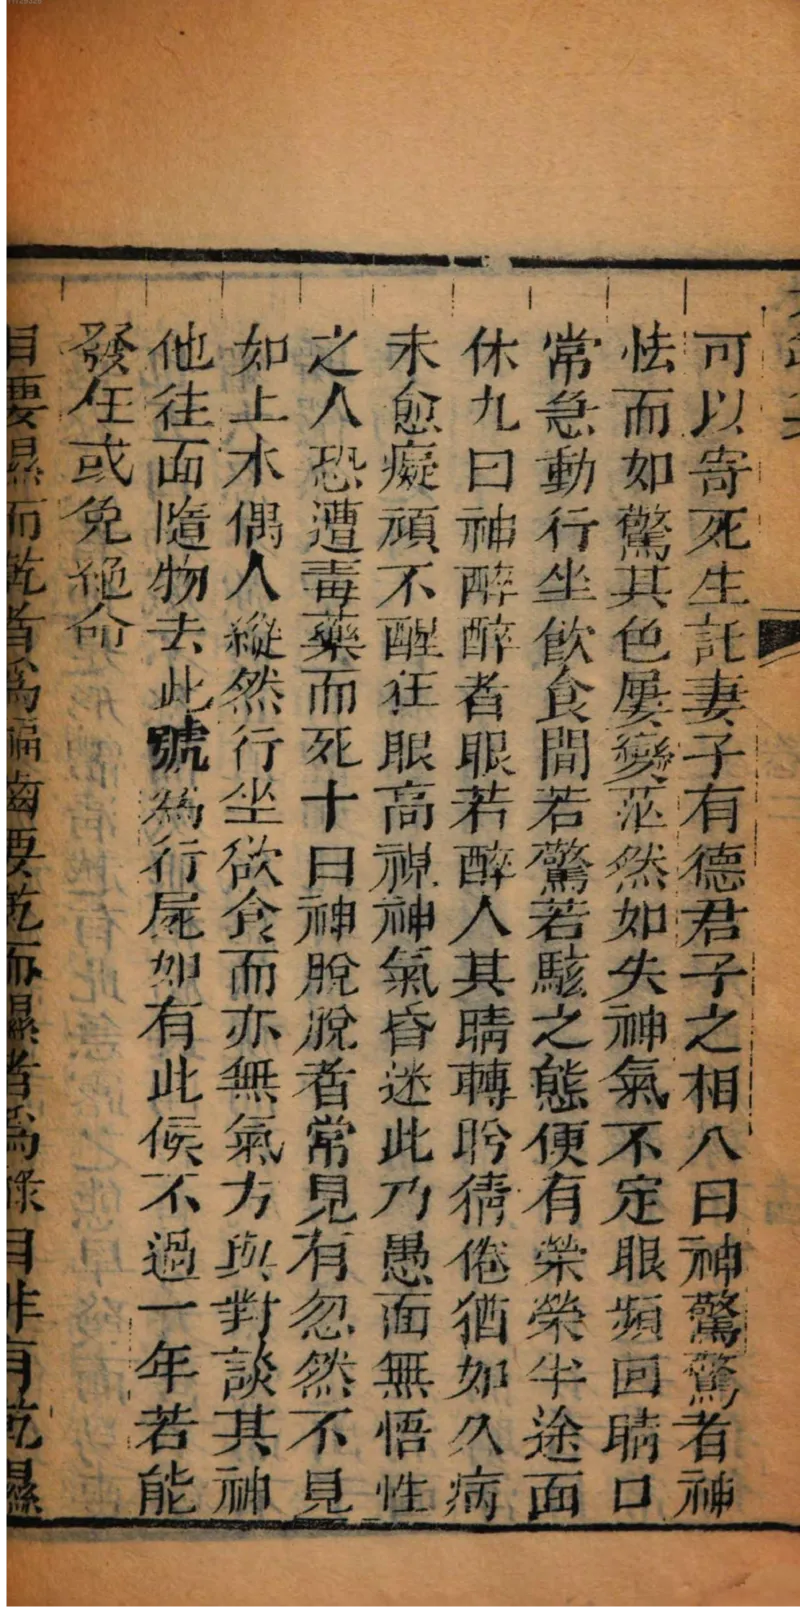 可以寄死生託妻子有德君子之相八曰神驚驚者神
怯而如驚其色屢變茫然如失神氣不定眼頻回睛口
常急動行坐飲食間若驚若駭之態便有榮榮半途面
休九曰神醉醉者眼若醉人其睛轉盼猜倦猶如久病
未愈癡頑不醒狂眼高視神氣昏迷此乃愚面無悟性
之人恐遭毒藥而死十曰神脫脫者常見有忽然不見
如上木偶人縱然行坐欲食而亦無氣方與對談其神
他往面隨物去此號為行屍如有此候不過一年若能
發任或免絕命
目要濕而乾者為禍齒要乾而濕者為 目非有乾濕